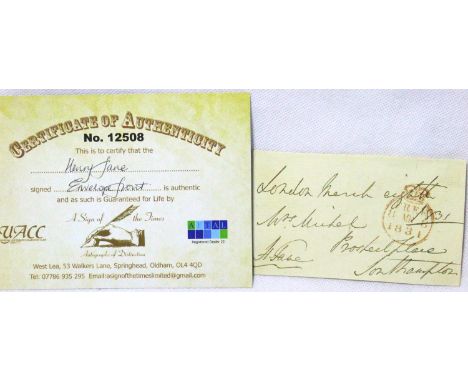 CERTIFICATE OF AUTHENTICITY
No. 12508
This is to certify that the
Henry Fane
signed Envelope front is authentic
and as such is Guaranteed for Life by
A Sign of the Times
UACC
Autographs of Distinction
West Lea, 53 Walkers Lane, Springhead, Oldham, OL4 4QD
Tel: 07786 935 295 Email:asignofthetimeslimited@gmail.com
London March eighth 1831
Mrs Michel
Prospect place
HFane
Southampton
1831